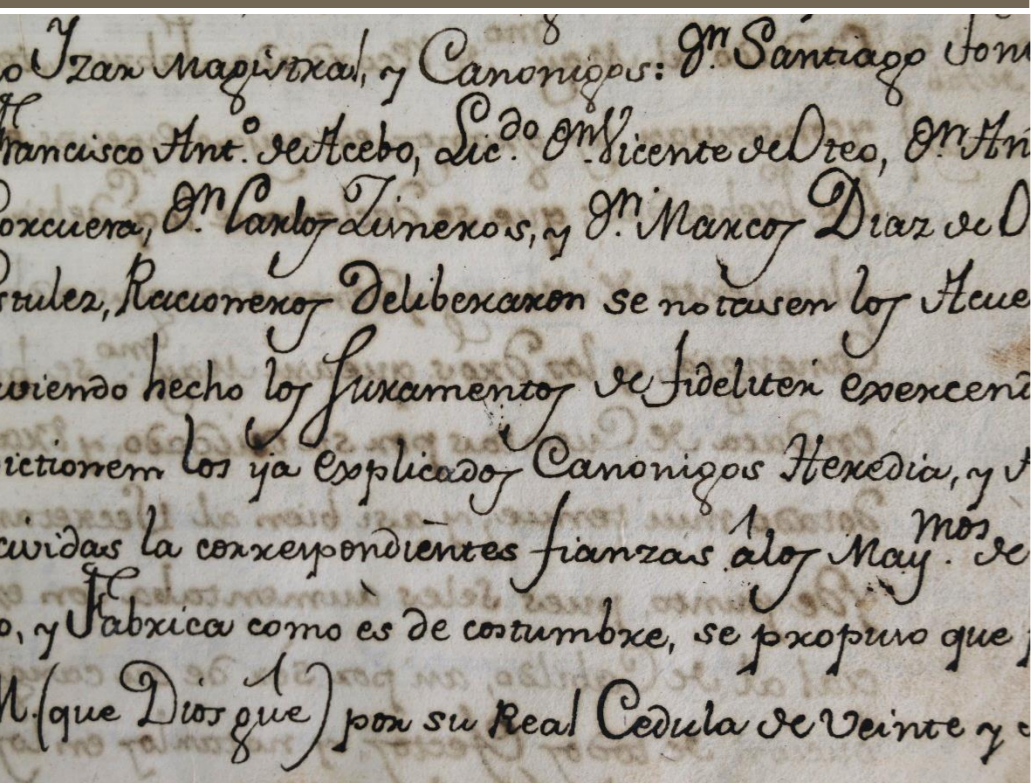 o Yzar Magistral, y Canonigos: Dn. Santiago Fon
Francisco Ant.o de Acebo, Lic.do Dn. Vicente de Oteo, Dn. An
orcuera, Dn. Carlos Zineros, y Dn. Marcos Diaz de O
stulez, Racioneros Deliberaron se notasen los Acue
viendo hecho los Juramentos de fideliter exercend
ictionem los ya explicados Canonigos Heredia, y
cividas la correspondientes fianzas á los May.mos de
o, y Fabrica como es de costumbre, se propuso que
M. (que Dios gue) por su Real Cedula de Veinte y